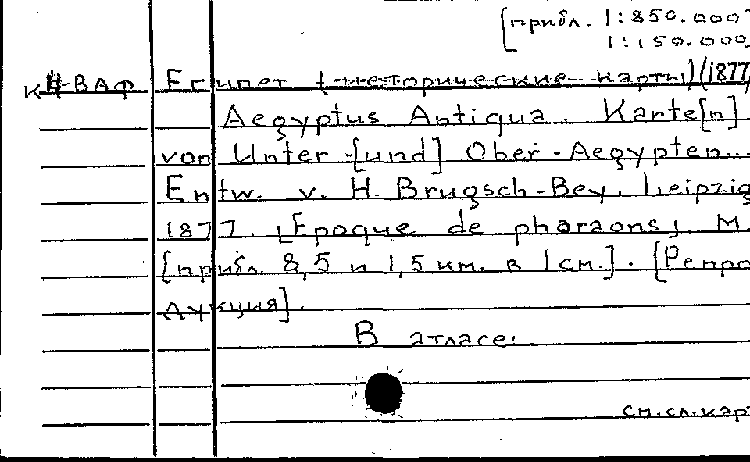 [прибл. 1:850.000
1:150.000
К4-ВАФ Египет (исторические карты) (1877)
Aegyptus Antiqua. Karte[n]
von Unter-[und] Ober-Aegypten...
Entw. v. H. Brugsch-Bey. Leipzig
1877. (Epoque de pharaons). M.
[прибл. 8,5 и 1,5 км. в 1 см.]. [Репро-
дукция].
В атласе:
см. сл. кар